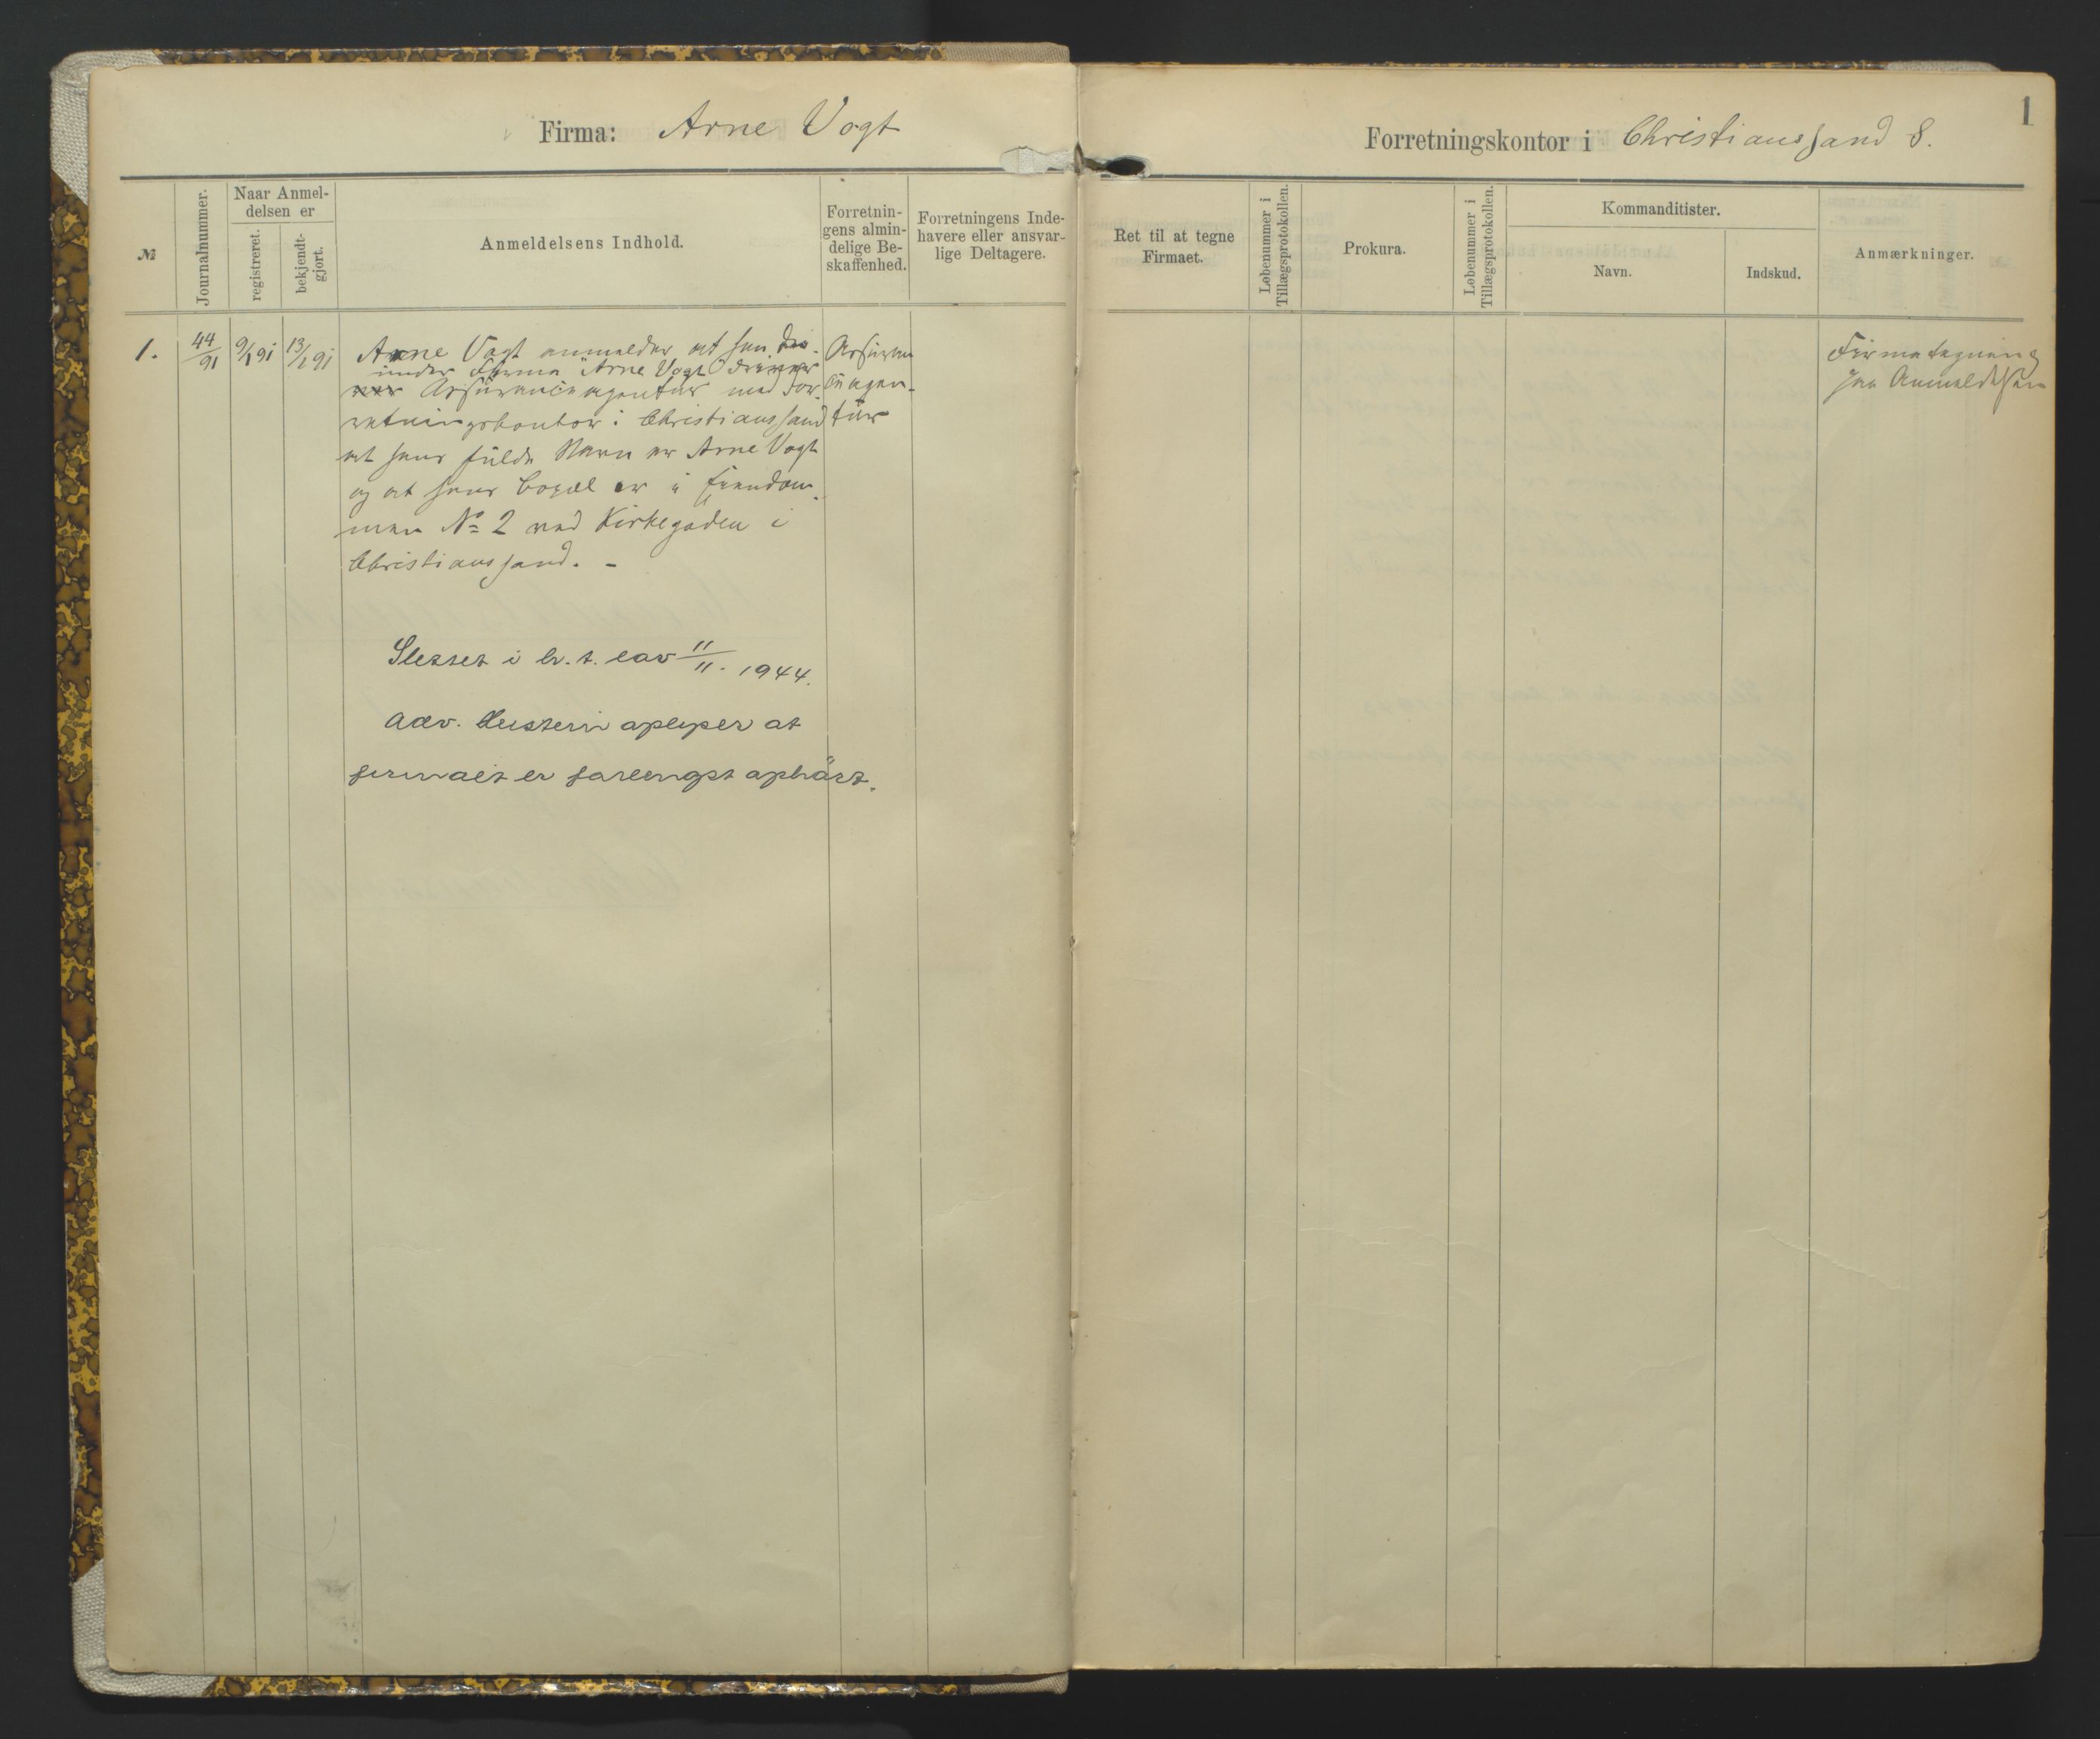 Firma: Arne Vogt
Forretningskontor i Christianssand S.
1
№
Journalnummer.
Naar Anmel-
delsen er
registreret.
bekjendt-
gjort.
Anmeldelsens Indhold.
Forretnin-
gens almin-
delige Be-
skaffenhed.
Forretningens Inde-
havere eller ansvar-
lige Deltagere.
Ret til at tegne
Firmaet.
Løbenummer i
Tillægsprotokollen.
Prokura.
Løbenummer i
Tillægsprotokollen.
Kommanditister.
Navn.
Indskud.
Anmærkninger.
1.
44/91
9/1 91
13/1 91
Arne Vogt anmelder, at han dri-
under Firma "Arne Vogt" driver
ver Assuranceagentur med For-
retningskontor i Christianssand
at hans fulde Navn er Arne Vogt
og at hans Bopæl er i Eiendom-
men No 2 ved Kirkegaden i
Christianssand. -
Assuran-
ceagen-
tur
Firmategning
se Anmeldelsen
Slettet i h. t. lov 11/11. 1944.
Adv. opl
firmaet er forlengst ophørt.